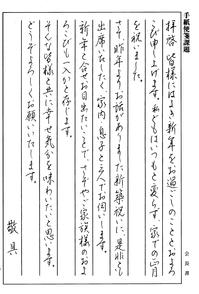 手紙便箋課題
拝啓 皆様にはよき新年をお過ごしのことおよろ
こび申し上げます。私どもはいつもと変らず、家での正月
を祝いました。
さて昨年よりお話がありました新築祝いに、是非とも
出席いたしたく、家内、息子と三人でお伺いします。
新年と合せお目出たいことで、さぞやご家族様のおよ
ろこびも一入かと存じます。
そんな皆様と共に幸せ気分を味わいたいと思います。
どうぞよろしくお願いいたします。
敬具
会長課